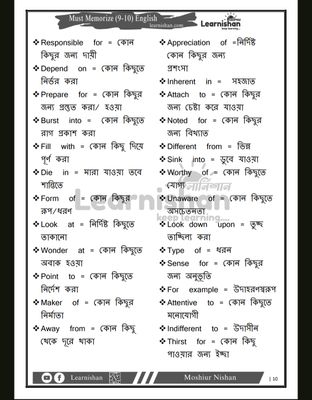 Must Memorize (9-10) English
learnishan.com
Learnishan
keep learning...
❖ Responsible for = কোন
কিছুর জন্য দায়ী
❖ Depend on = কোন কিছুতে
নির্ভর করা
❖ Prepare for = কোন কিছুর
জন্য প্রস্তুত করা/ হওয়া
❖ Burst into = কোন কিছুতে
রাগ প্রকাশ করা
❖ Fill with = কোন কিছু দিয়ে
পূর্ণ করা
❖ Die in = মারা যাওয়া তবে
শান্তিতে
❖ Form of = কোন কিছুর
রূপ/ধরণ
❖ Look at = নির্দিষ্ট কিছুতে
তাকানো
❖ Wonder at = কোন কিছুতে
অবাক হওয়া
❖ Point to = কোন কিছুতে
নির্দেশ করা
❖ Maker of = কোন কিছুর
নির্মাতা
❖ Away from = কোন কিছু
থেকে দূরে থাকা
❖ Appreciation of =নির্দিষ্ট
কোন কিছুর জন্য
প্রশংসা
❖ Inherent in = সহজাত
❖ Attach to = কোন কিছুর
জন্য চেষ্টা করে যাওয়া
❖ Noted for = কোন কিছুর
জন্য বিখ্যাত
❖ Different from = ভিন্ন
❖ Sink into = ডুবে যাওয়া
❖ Worthy of = কোন কিছুতে
যোগ্য
❖ Unaware of = কোন কিছুতে
অসচেতনতা
❖ Look down upon = তুচ্ছ
তাচ্ছিল্য করা
❖ Type of = ধরন
❖ Sense for = কোন কিছুর
জন্য অনুভূতি
❖ For example = উদাহরণস্বরূপ
❖ Attentive to = কোন কিছুতে
মনোযোগী
❖ Indifferent to = উদাসীন
❖ Thirst for = কোন কিছু
পাওয়ার জন্য ইচ্ছা
লার্নিশান
Learnishan
keep learning...
Learnishan
Moshiur Nishan
| 10